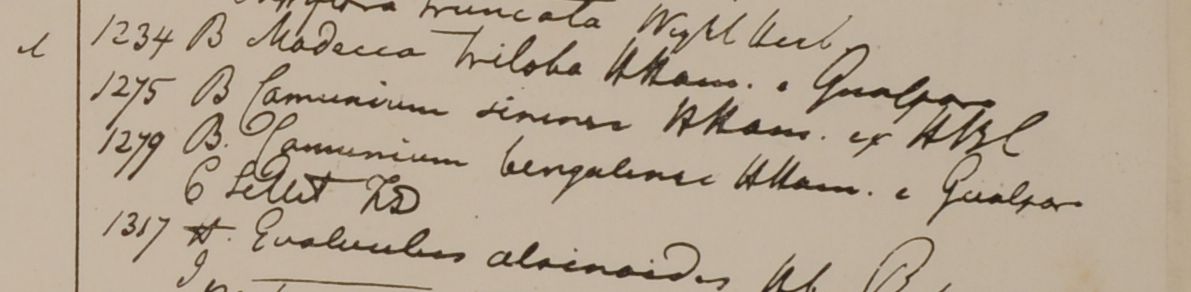 truncata Wight Herb
1234 B Modecca triloba HHam. e Gualpara
1275 B Camunium sinense HHam. ex HBC
1279 B. Camunium bengalense HHam. e Gualpara
C Sillet FD
1317 H. Evolvulus alsinoides Hb.